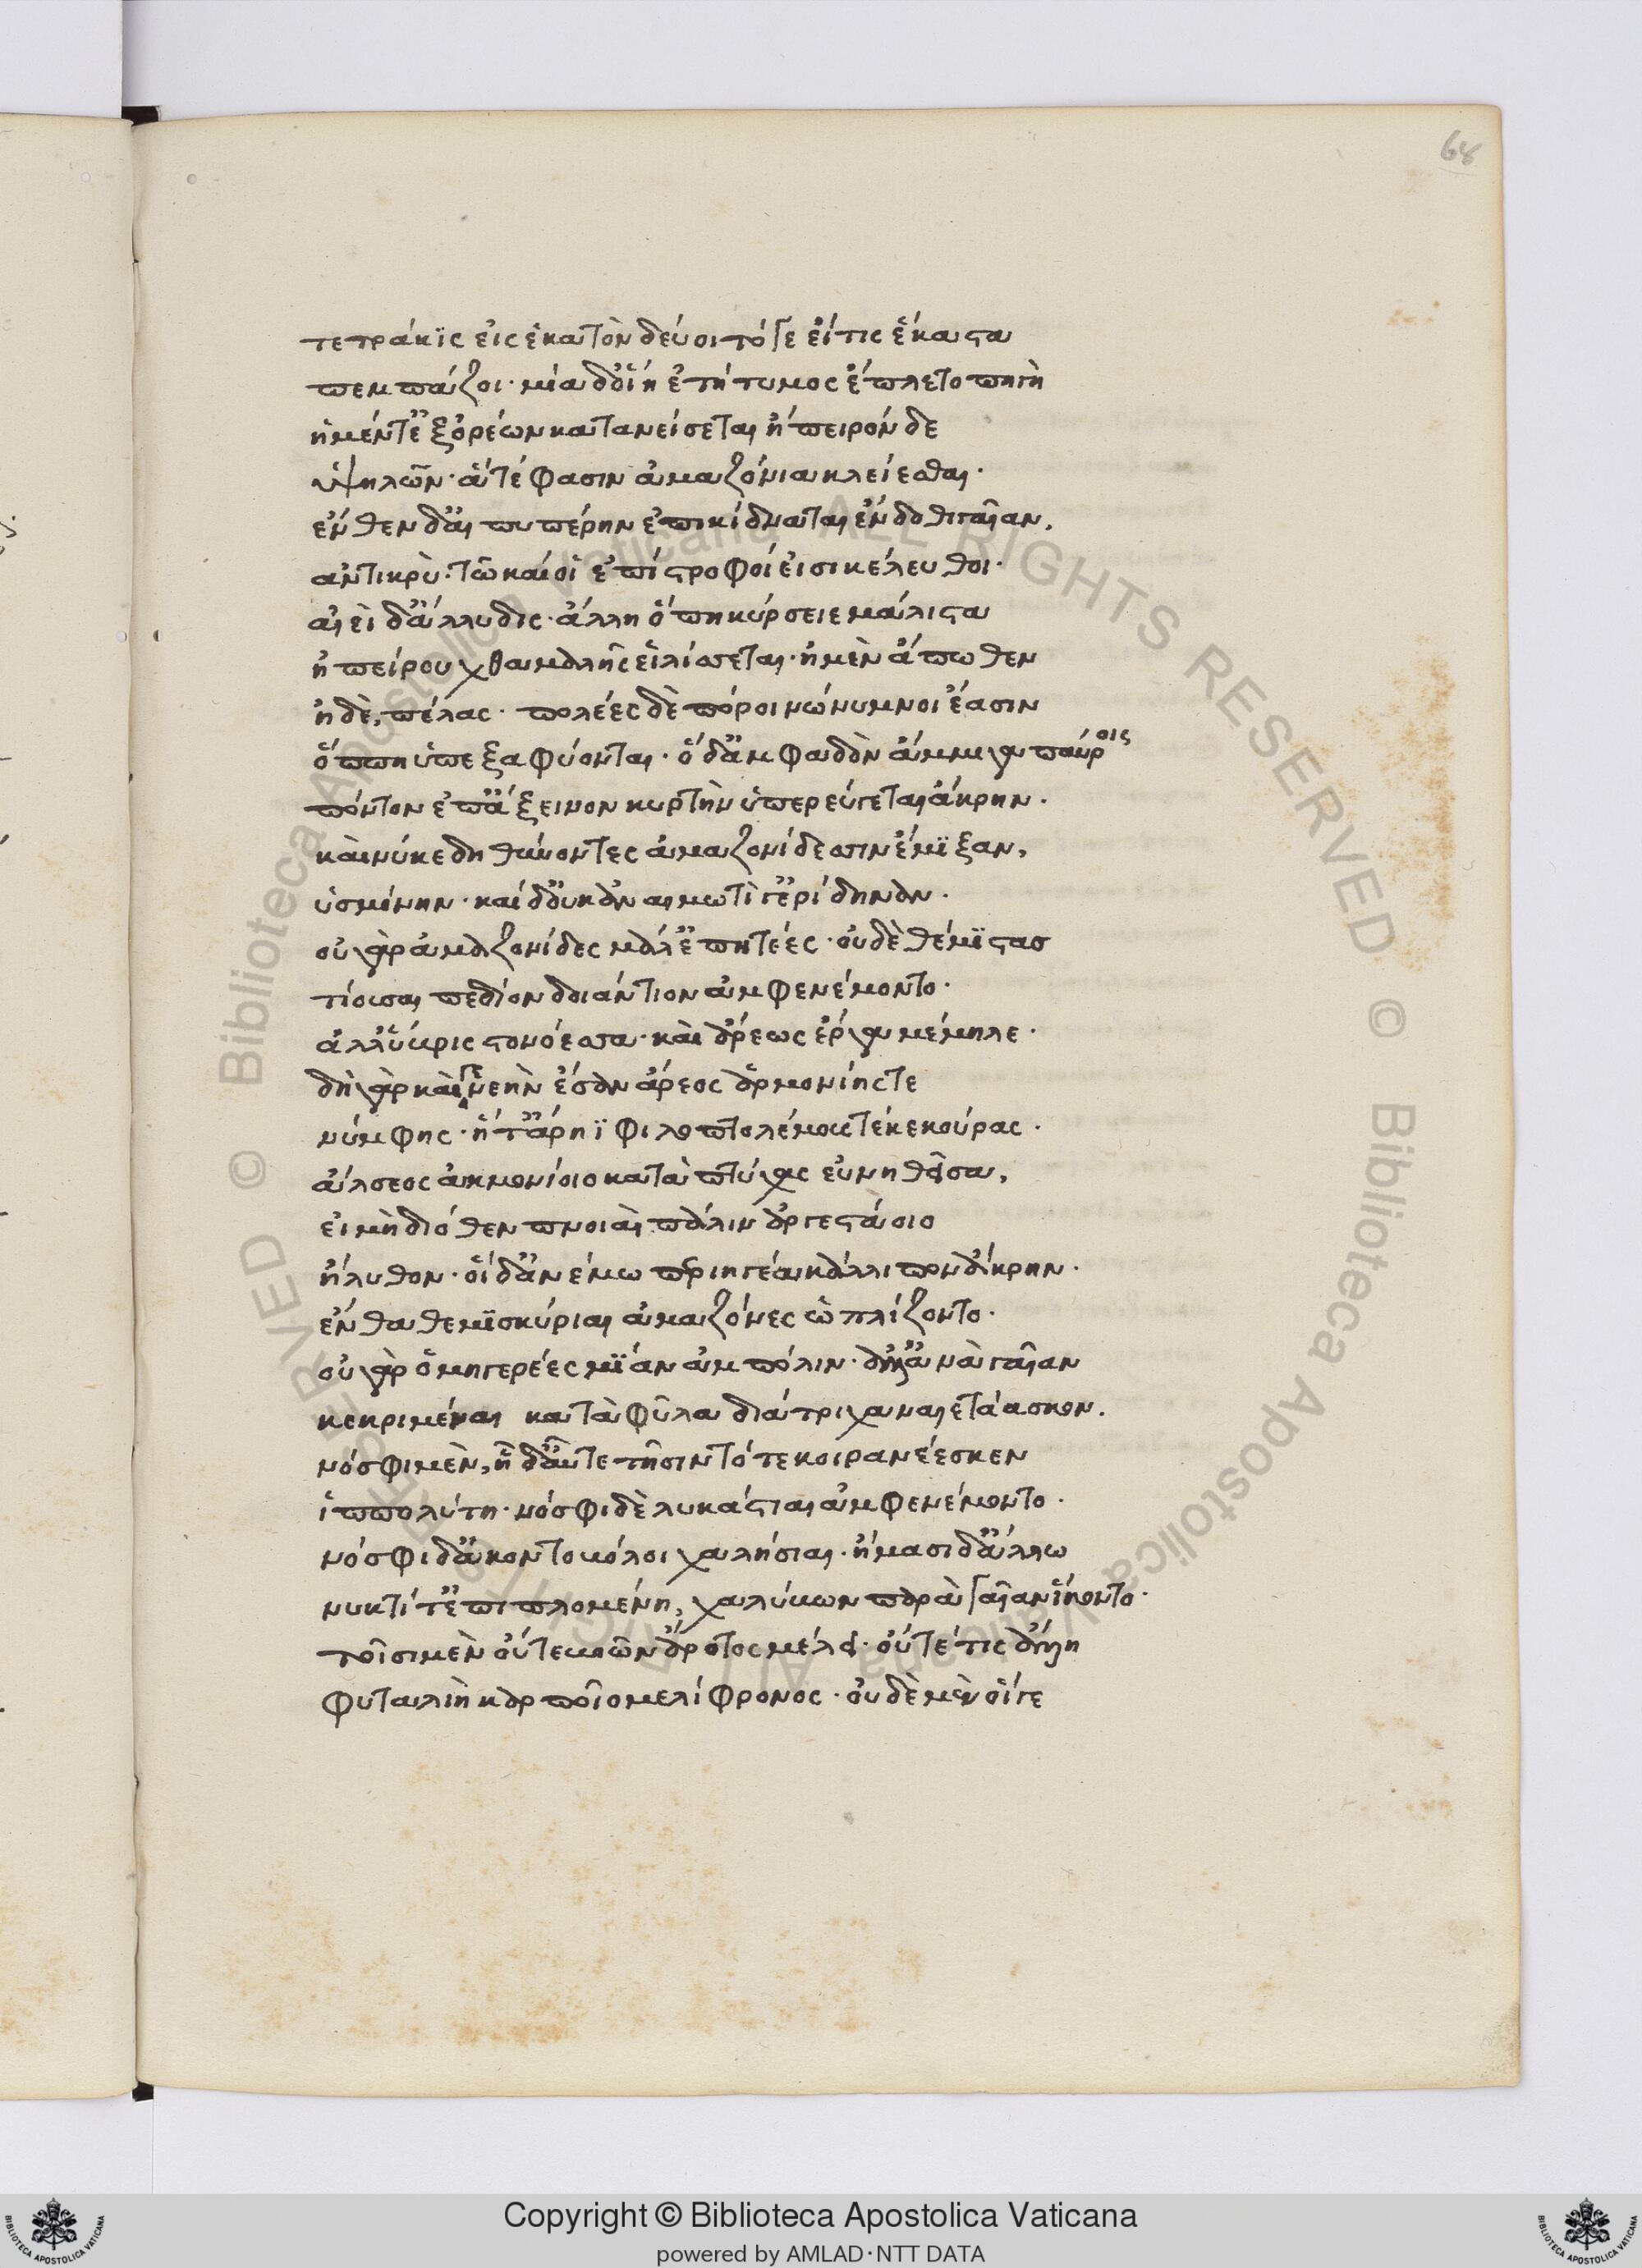 τετράκϊς εἰς ἑκατὸν δεύοιτό γε εἴ τις ἕκαστα
πεμπάζοι· μία δ' οἴη ἐτήτυμος ἔπλετο πηγὴ
ἡ μέν τ' ἐξ ὀρέων κατανείσεται ἤπειρόν δε
ὑψηλῶν· ἅ τέ φασιν ἀμαζόνια κλείεσθαι·
ἔνθεν δ' αἰπυπέρην ἐπικίδναται ἔνδοθι γαῖαν,
ἀντικρὺ· τῶ καί οἱ ἐπίστροφοί εἰσι κέλευθοι·
αἰεὶ δ' ἄλλυδις· ἄλλη ὅπη κύρσειε μάλιστα
ἠπείρου χθαμαλῆς εἱλίσσεται· ἡ μὲν ἄπωθεν
ἡ δὲ, πέλας· πολέες δὲ πόροι νώνυμνοι ἔασιν
ὅππη ὑπεξαφύονται· ὁ δ' ἀμφαδὸν ἄμμιγα παύροις
πόντον ἐπ' ἄξεινον κυρτὴν ὑπερεύγεται ἄκρην.
καὶ νύ κε δηθύνοντες ἀμαζονίδεσσιν ἔμϊξαν,
ὑσμίνην· καί δ' οὐκ ἂν αιμωτὶ γ' ἐρίδηναν.
οὐ γὰρ ἀμαζονίδες μάλ' ἐπητέες· οὐδὲ θέμϊστας
τίουσαι πεδίον δοιάντιον ἀμφενέμοντο·
ἀλλ' ὕβρις στονόεσσα· καὶ ἄρεως ἔργα μέμηλε·
δὴ γὰρ καὶ γενεὴν ἔσαν ἄρεος ἁρμονίης τε
νύμφης· ἥ τ' ἄρηϊ φιλοπτολέμους τέκε κούρας·
ἄλσεος ἀκμονίοιο κατὰ πτύχας εὐνηθεῖσα,
εἰ μὴ διόθεν πνοιαὶ πάλιν ἀργεστάοιο
ἤλυθον· οἱ δ' ἀνέμω περιηγέα κάλλιπον ἄκρην·
ἔνθα θεμϊσκύριαι ἀμαζόνες ὡπλίζοντο·
οὐ γὰρ ὁμηγερέες μϊάν ἀμ πόλιν· ἀλλ' ἀνὰ γαῖαν
κεκριμέναι κατὰ φῦλα διάτριχα ναιετάασκον.
νόσφι μὲν, ἧ δ' αὖτε τῇσιν τότε κοιρανέεσκεν
ἱππολύτη· νόσφι δὲ λυκάστιαι ἀμφενέμοντο·
νόσφι δ' ἀκοντοβόλοι χαλήσιαι· ἤμασι δ' ἄλλω
νυκτί τ' ἐπιπλομένη, χαλύβων παρὰ γαῖαν ἵκοντο·
τοῖσι μὲν οὔτε βοῶν ἄροτος μέλει· οὔτέ τις ἄλλη
φυταλιὴ καρποῖο μελίφρονος· οὐδὲ μὲν οἵγε
68
Copyright © Biblioteca Apostolica Vaticana
powered by AMLAD·NTT DATA